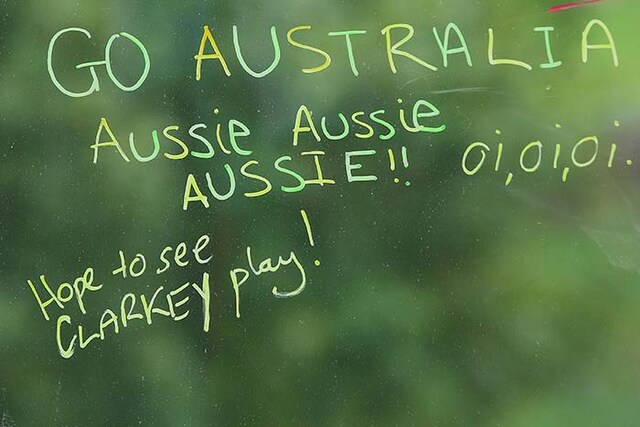 GO AUSTRALIA
Aussie Aussie
AUSSIE!! oi,oi,oi.
Hope to see
CLARKEY play!